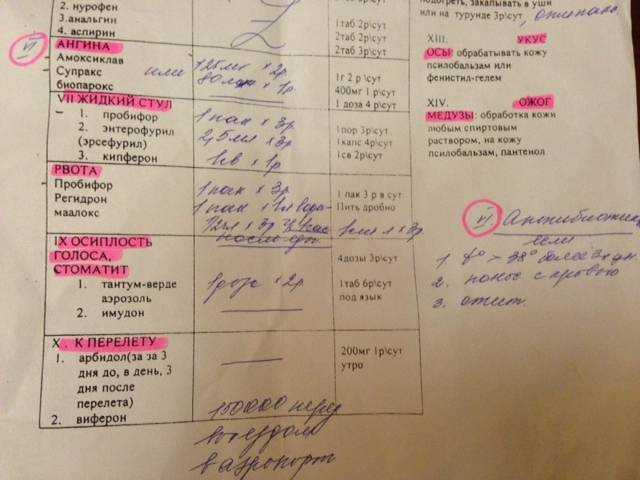 2. нурофен
3.анальгин
4. аспирин
1таб 2р\сут
2таб 2р\сут
2таб 3р\сут
VI
АНГИНА
Амоксиклав 125мл х 2р 1г 2 р \сут
Супракс или 80мл х 1р 400мг 1 р\сут
биопарокс 1 доза 4 р\сут
VII ЖИДКИЙ СТУЛ
1. пробифор 1 пак х 3р 1пор 3р\сут
2. энтерофурил 2,5мл х 3р 1капс 4р\сут
(эрсефурил)
3. кипферон 1св х 1р 1св 2р\сут
РВОТА
Пробифор 1пак х 3р 1 пак 3 р в сут
Регидрон 1 пак х 1л воды Пить дробно
маалокс
IX ОСИПЛОСТЬ
ГОЛОСА,
СТОМАТИТ
1. тантум-верде 1доза х 2р 4дозы 3р\сут
аэрозоль
2. имудон 1таб 6р\сут
под язык
X. К ПЕРЕЛЕТУ
1. арбидол(за за 3 200мг 1р\сут
дня до, в день, 3 утро
дня после
перелета)
2. виферон 150000 перед
выездом
в аэропорт
подогреть, закапывать в уши
или на турунде 3р\сут,
XIII. УКУС
ОСЫ: обрабатывать кожу
псилобальзам или
фенистил-гелем
XIV. ОЖОГ
МЕДУЗЫ: обработка кожи
любым спиртовым
раствором, на кожу
псилобальзам, пантенол.
VI Антибиотик
если
1 t° > 38° более 3х дн.
2. понос с кровью
3. отит.